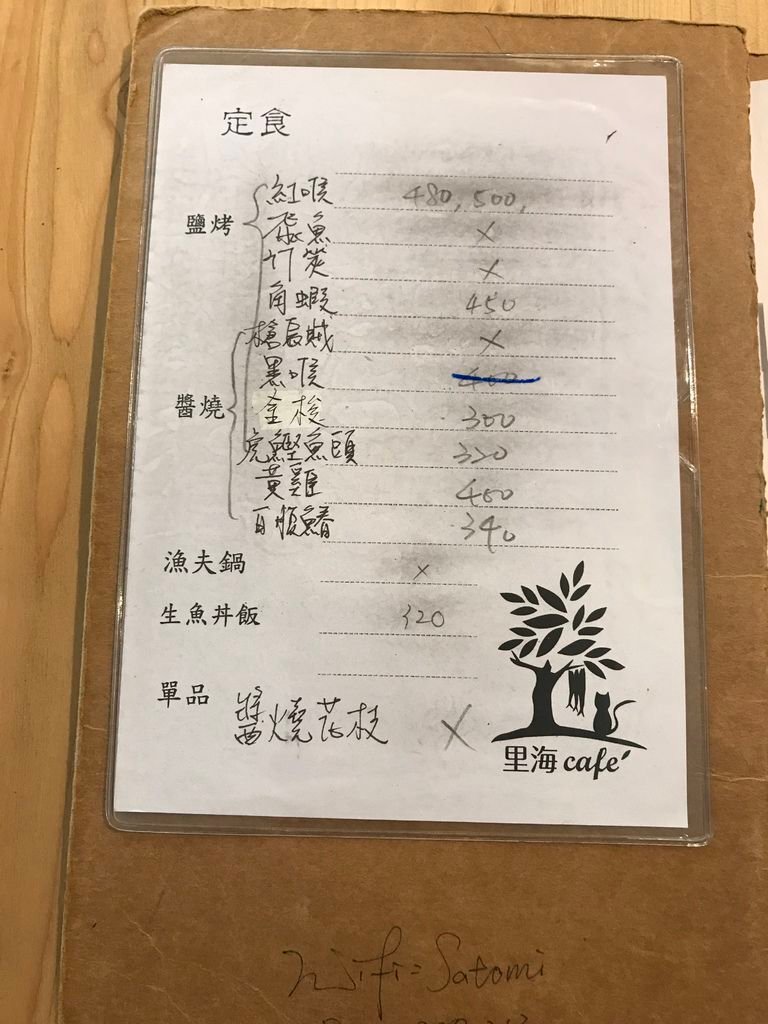 定食
鹽烤
紅喉 480, 500,
飛魚 X
竹筴 X
角蝦 450
醬燒
槍烏賊 X
黑喉 400
金梭 300
虎鰹魚頭 320
黃雞 400
百順鰆 340
漁夫鍋 x
生魚丼飯 320
單品 醬燒花枝 X
里海 cafe'
Wifi = Satomi